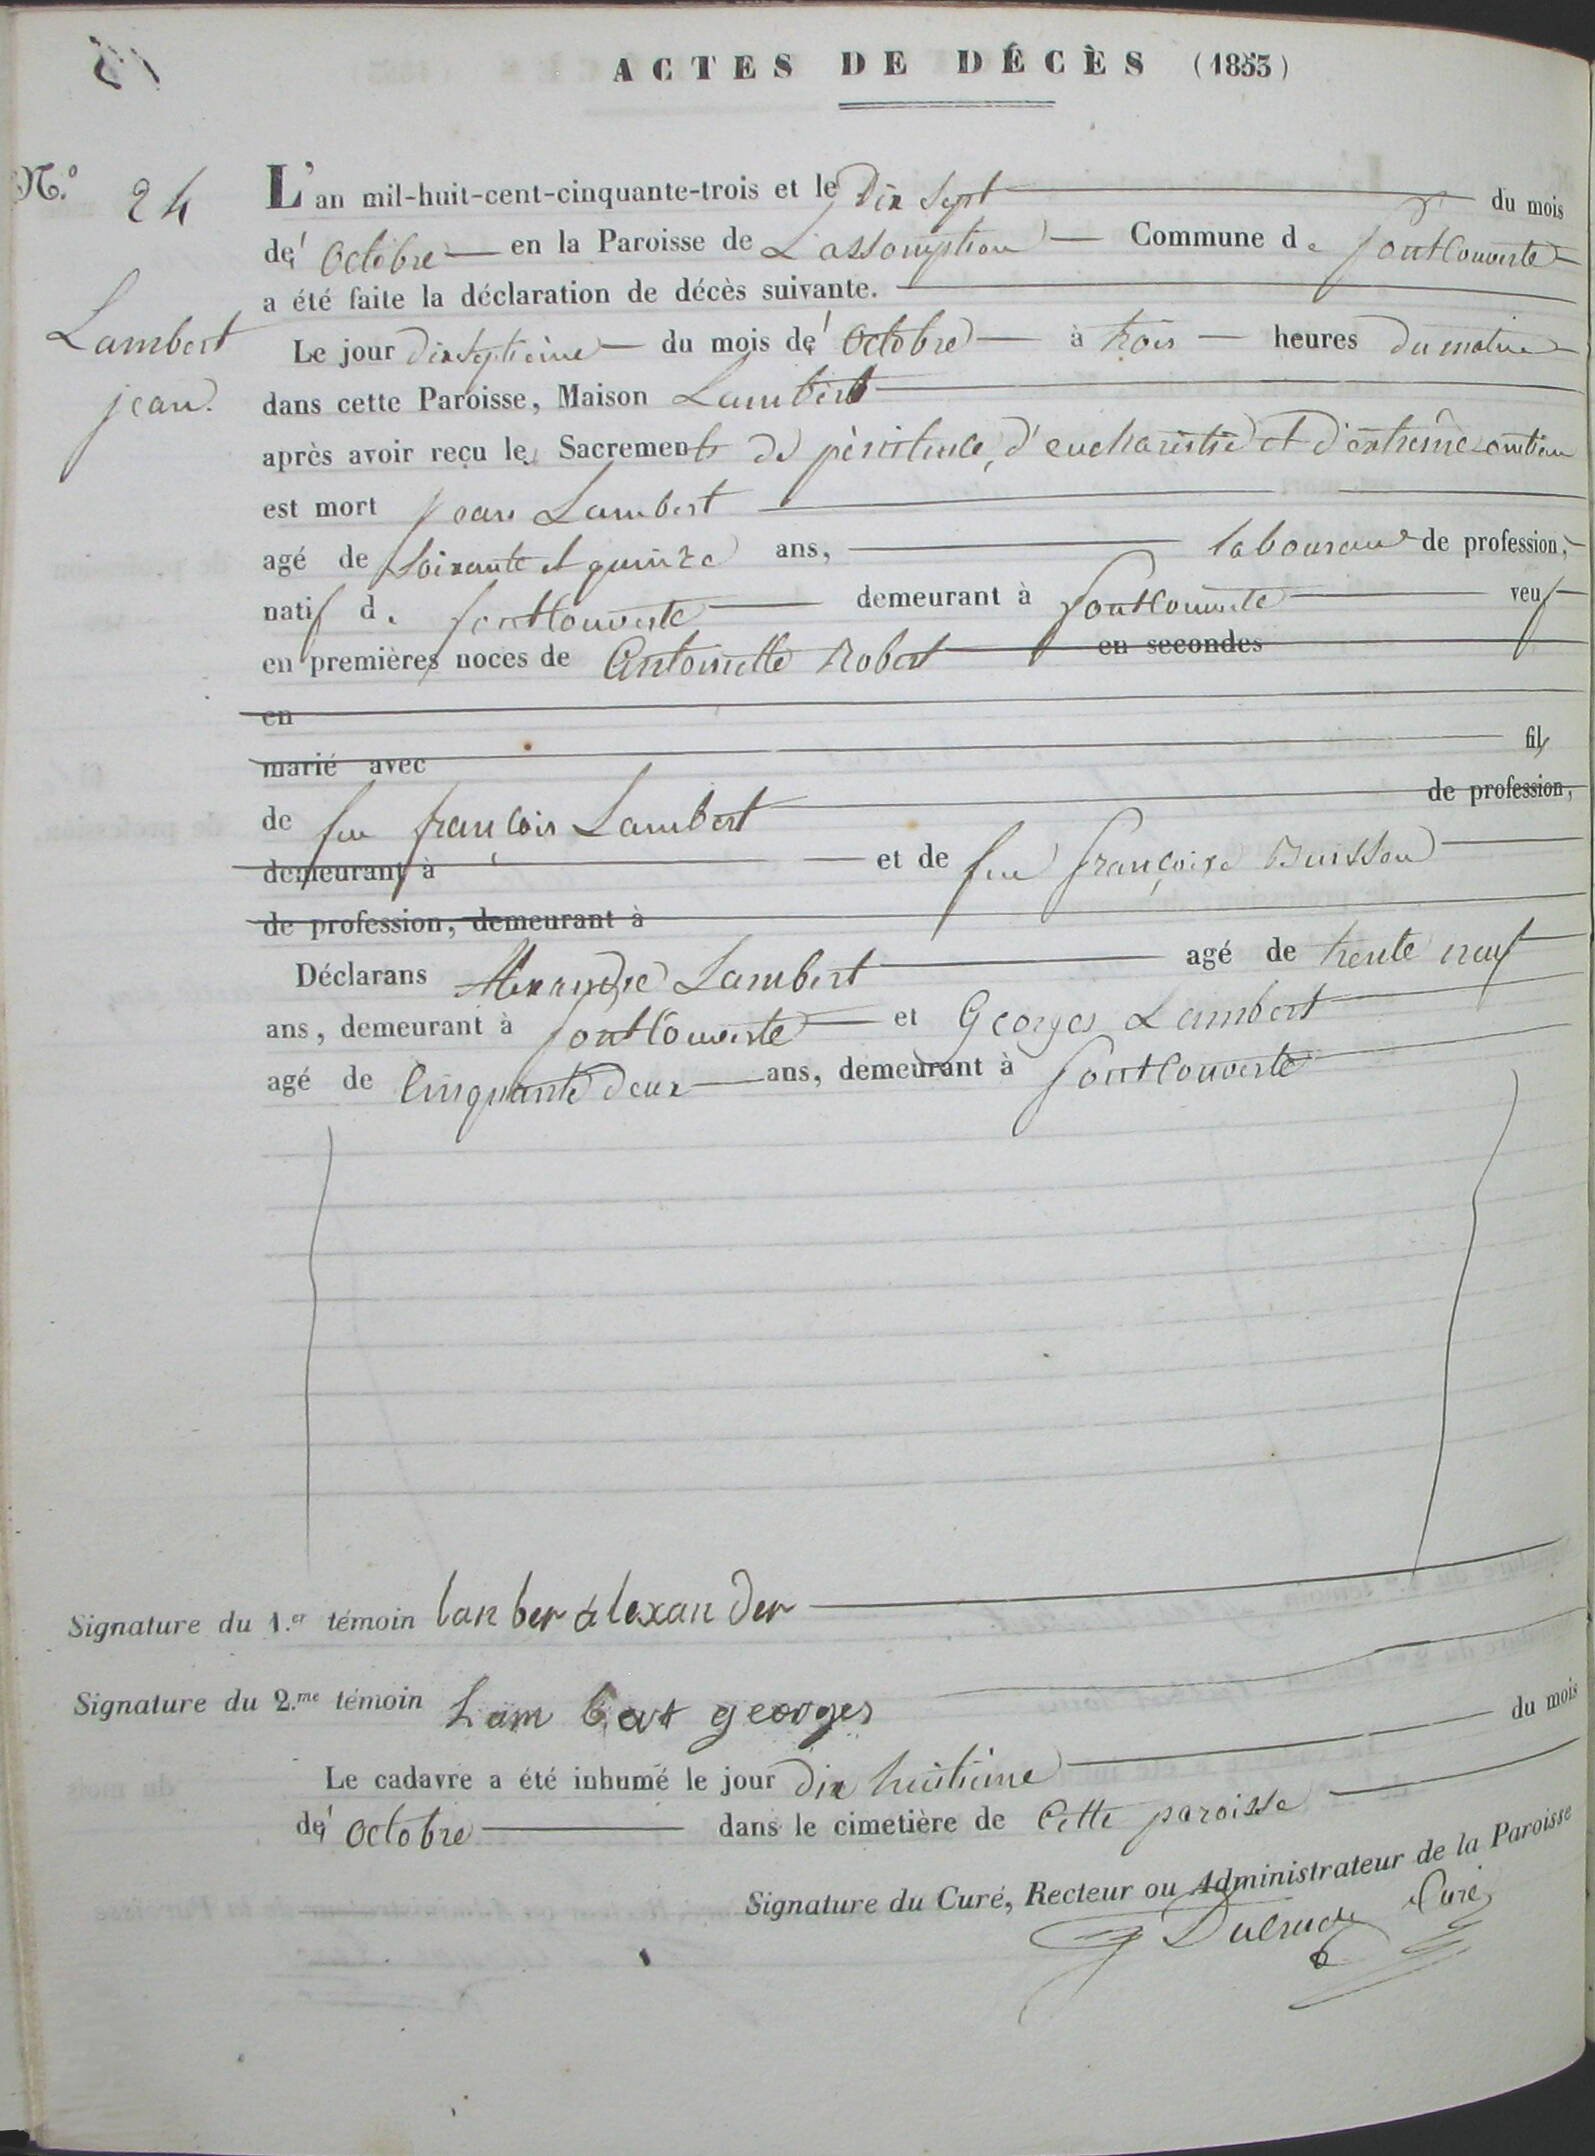 ACTES DE DÉCÈS (1853)
N.º 24 L'an mil-huit-cent-cinquante-trois et le Dix Sept du mois
de l' Octobre en la Paroisse de L'assomption Commune de fontcouverte
a été faite la déclaration de décès suivante.
Lambert jean.
Le jour dixseptieme du mois de l' Octobre à trois heures du matin
dans cette Paroisse, Maison Lambert
après avoir reçu les Sacrements de pénitence, d'eucharistie et d'extrême onction
est mort Jean Lambert
agé de Soixante et quinze ans, laboureur de profession,
natif de fontcouverte demeurant à fontcouverte veuf
en premières noces de Antoinette Robert en secondes
en
marié avec fils
de feu françois Lambert de profession,
demeurant à et de feu françoise Buisson
de profession, demeurant à
Déclarans Alexandre Lambert agé de trente neuf
ans, demeurant à fontcouverte et Georges Lambert
agé de Cinquante deux ans, demeurant à fontcouverte
Signature du 1.er témoin lanber alexander
Signature du 2.me témoin Lambert georges
Le cadavre a été inhumé le jour dix huitieme du mois
de l' octobre dans le cimetière de Cette paroisse
Signature du Curé, Recteur ou Administrateur de la Paroisse
Curé